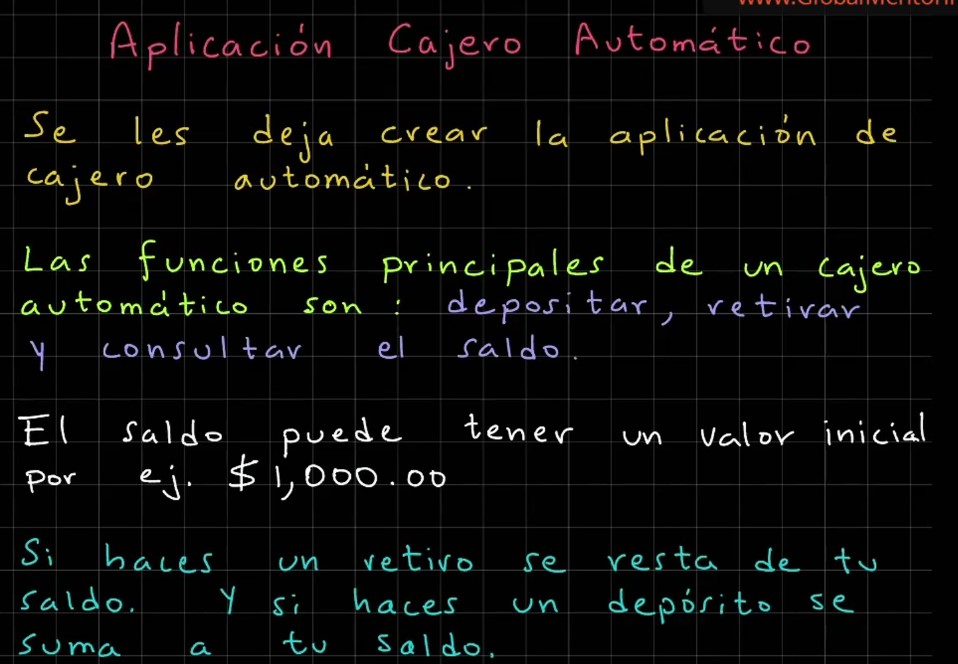 Aplicación Cajero Automático
Se les deja crear la aplicación de
cajero automático.
Las funciones principales de un cajero
automático son : depositar, retirar
y consultar el saldo.
El saldo puede tener un valor inicial
por ej. $1,000.00
Si haces un retiro se resta de tu
saldo. Y si haces un depósito se
suma a tu saldo.